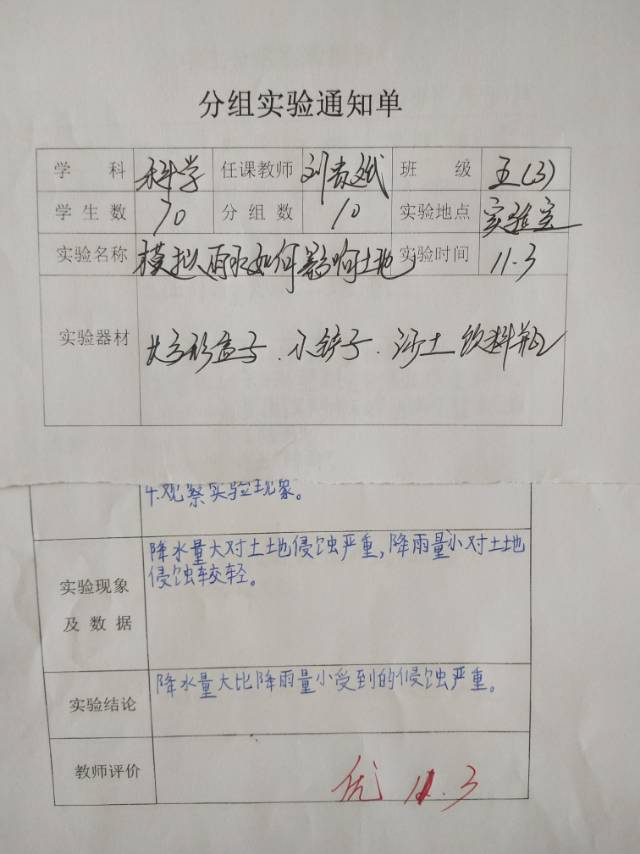 分组实验通知单
学 科 科学 任课教师 刘贵斌 班 级 五(3)
学生数 70 分组数 10 实验地点 实验室
实验名称 模拟雨水如何影响土地 实验时间 11.3
实验器材 长方形盒子、小铲子、沙土 饮料瓶
4.观察实验现象。
实验现象
及数据
降水量大对土土地侵蚀严重,降雨量小对土地
侵蚀较轻。
实验结论 降水量大比降雨量小受到的侵蚀严重。
教师评价 优 11.3